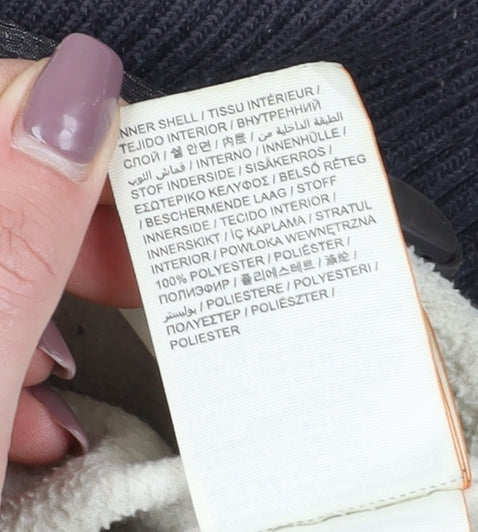 INNER SHELL / TISSU INTÉRIEUR /
TEJIDO INTERIOR / ВНУТРЕННИЙ
СЛОЙ / 쉘 안면 / 内层 / الطبقة الداخلية من
قماش الثوب / INTERNO / INNENHÜLLE /
STOF INDERSIDE / SISÄKERROS /
ΕΣΩΤΕΡΙΚΟ ΚΕΛΥΦΟΣ / BELSŐ RÉTEG
/ BESCHERMENDE LAAG / STOFF
INNERSIDE / TECIDO INTERIOR /
INNERSKIKT / İÇ KAPLAMA / STRATUL
INTERIOR / POWŁOKA WEWNĘTRZNA
100% POLYESTER / POLIÉSTER /
ПОЛИЭФИР / 폴리에스테르 / 涤纶 /
بوليستر / POLIESTERE / POLYESTERI /
ΠΟΛΥΕΣΤΕΡ / POLIÉSZTER /
POLIESTER